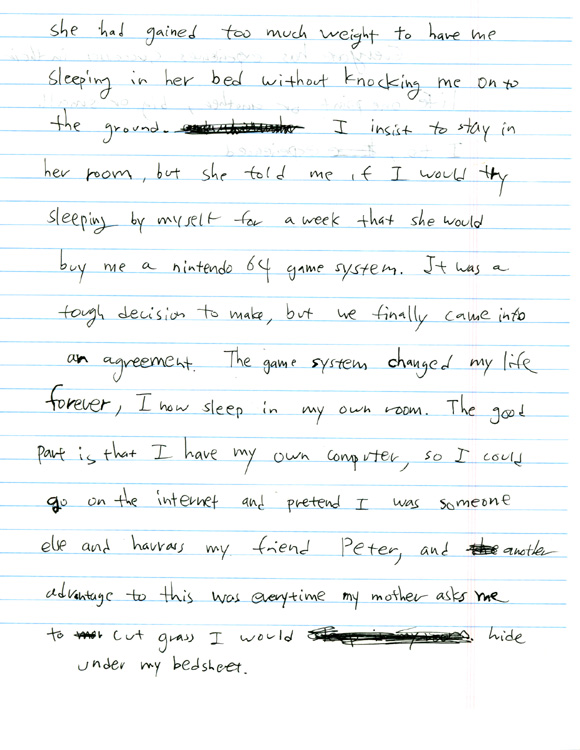 she had gained too much weight to have me
sleeping in her bed without knocking me on to
the ground. I insist to stay in
her room, but she told me if I would try
sleeping by myself for a week that she would
buy me a nintendo 64 game system. It was a
tough decision to make, but we finally came into
an agreement. The game system changed my life
forever, I now sleep in my own room. The good
part is that I have my own computer, so I could
go on the internet and pretend I was someone
else and harrass my friend Peter, and another
advantage to this was everytime my mother asks me
to cut grass I would hide
under my bedsheet.